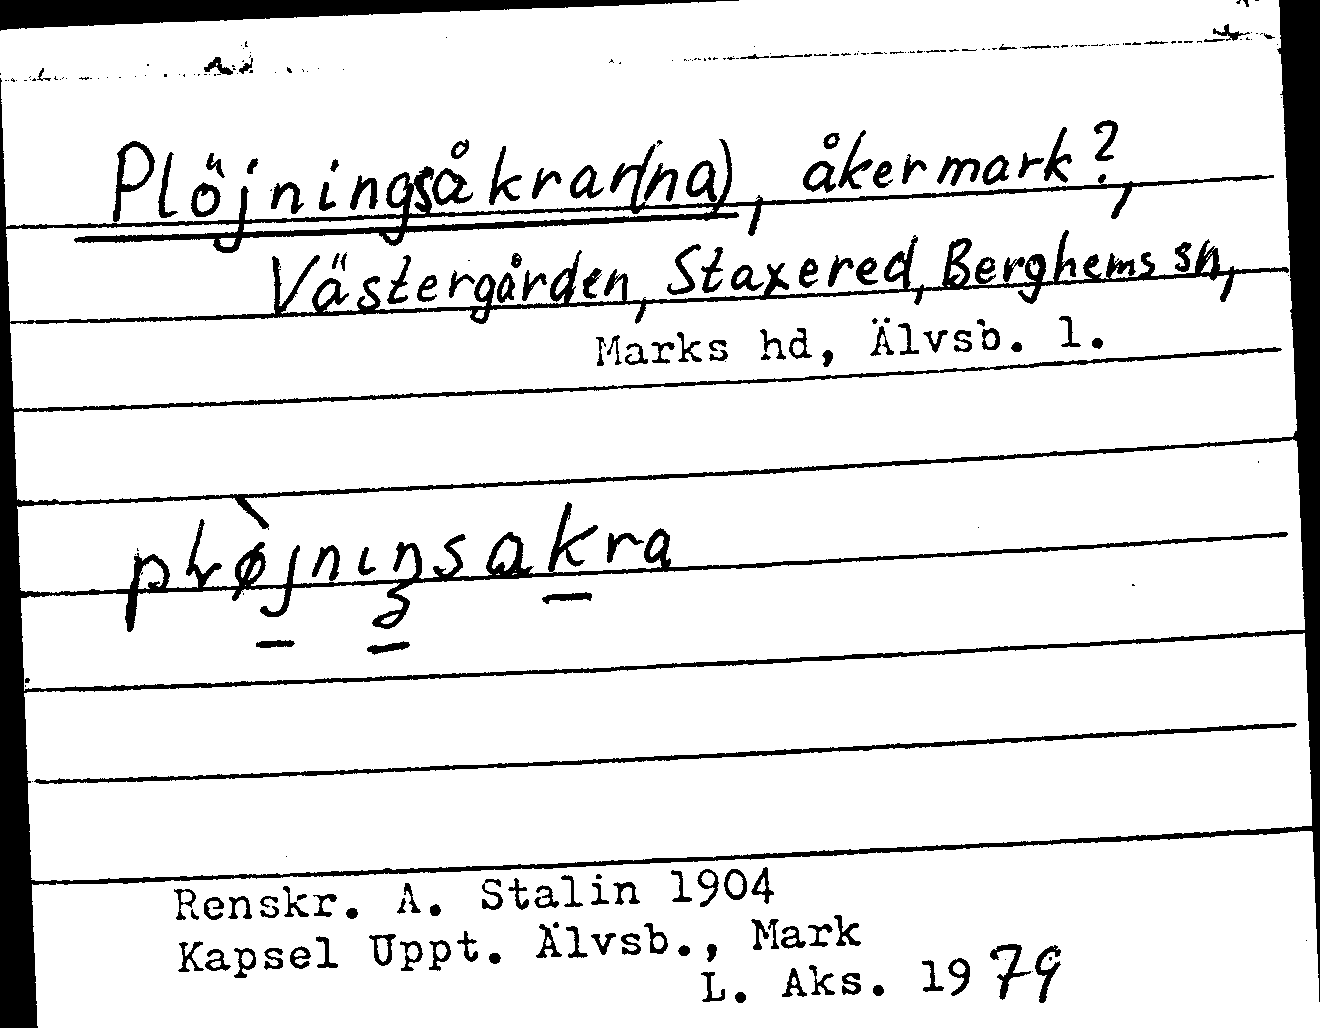 Plöjningsåkrar(na), åkermark?,
Västergården, Staxered, Berghems sn,
Marks hd, Älvsb. l.
Renskr. A. Stalin 1904
Kapsel Uppt. Älvsb., Mark
L. Aks. 1979